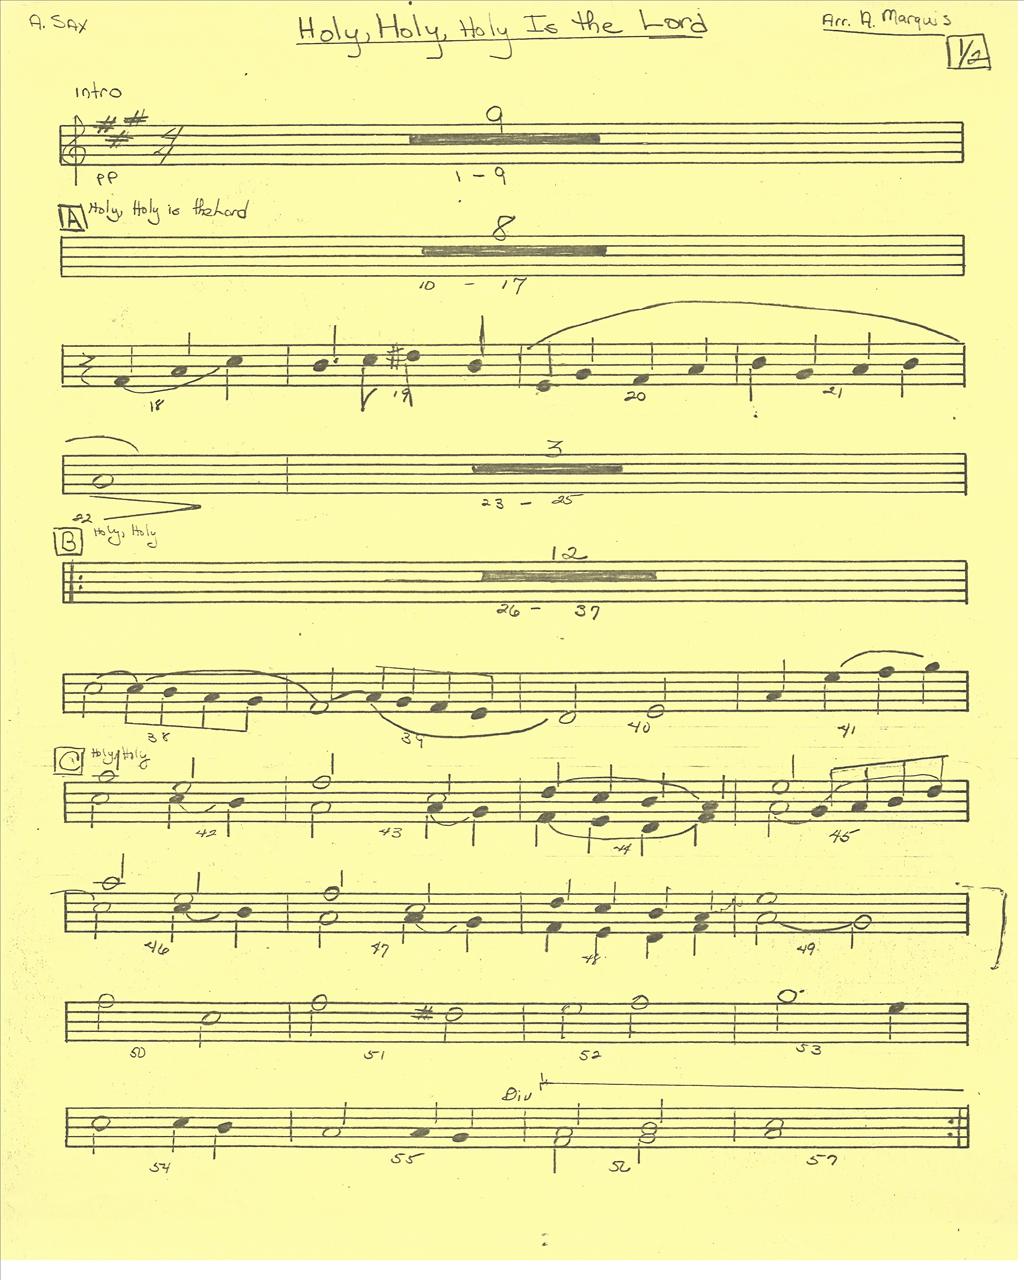 A. SAX
Holy, Holy, Holy Is the Lord
Arr. A. Marquis
1/2
intro
9
pp
1 - 9
A Holy, Holy is the Lord
8
10 - 17
18 19 20 21
3
22
23 - 25
B Holy, Holy
12
26 - 37
38 39 40 41
C Holy, Holy
42 43 44 45
46 47 48 49
50 51 52 53
Div
54 55 56 57